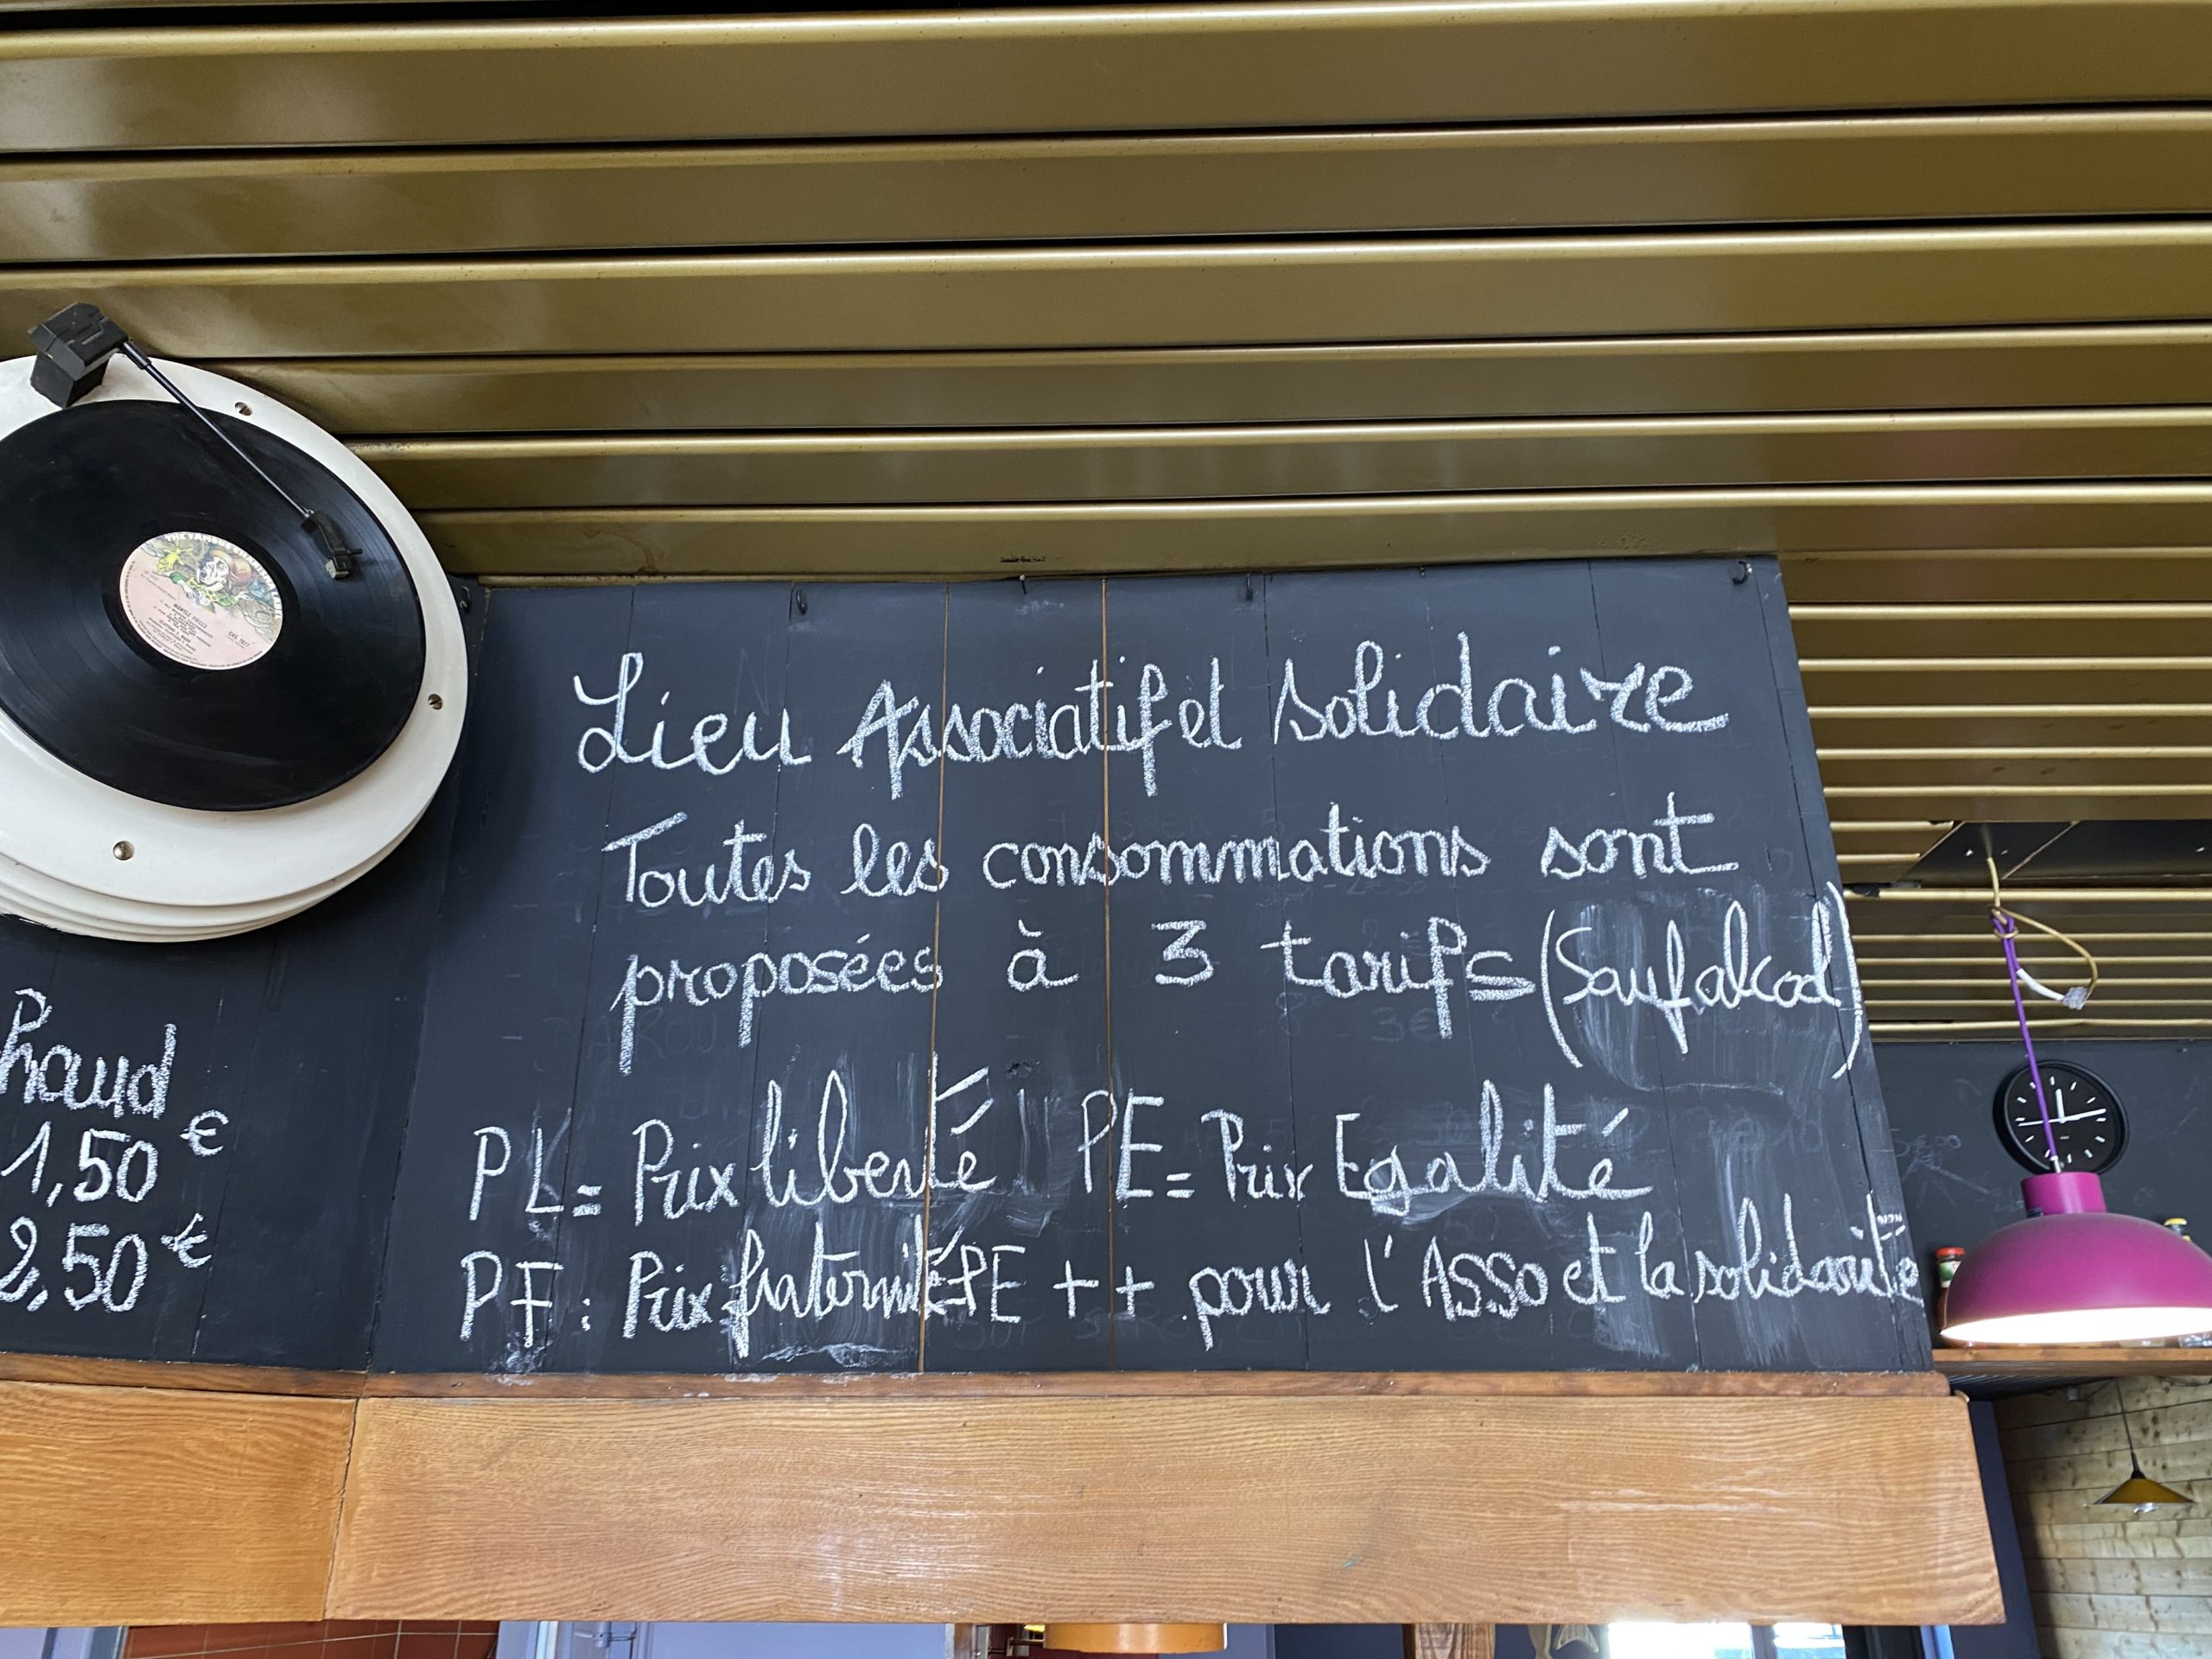 Lieu Associatif et solidaire
Toutes les consommations sont
proposées à 3 tarifs (Sauf alcool)
PL = Prix liberté PE = Prix Egalité
PF : Prix fraternité PE ++ pour l'ASSO et la solidarité
haud
1,50 €
2,50 €
MANTLE PIECES
CAS 1077